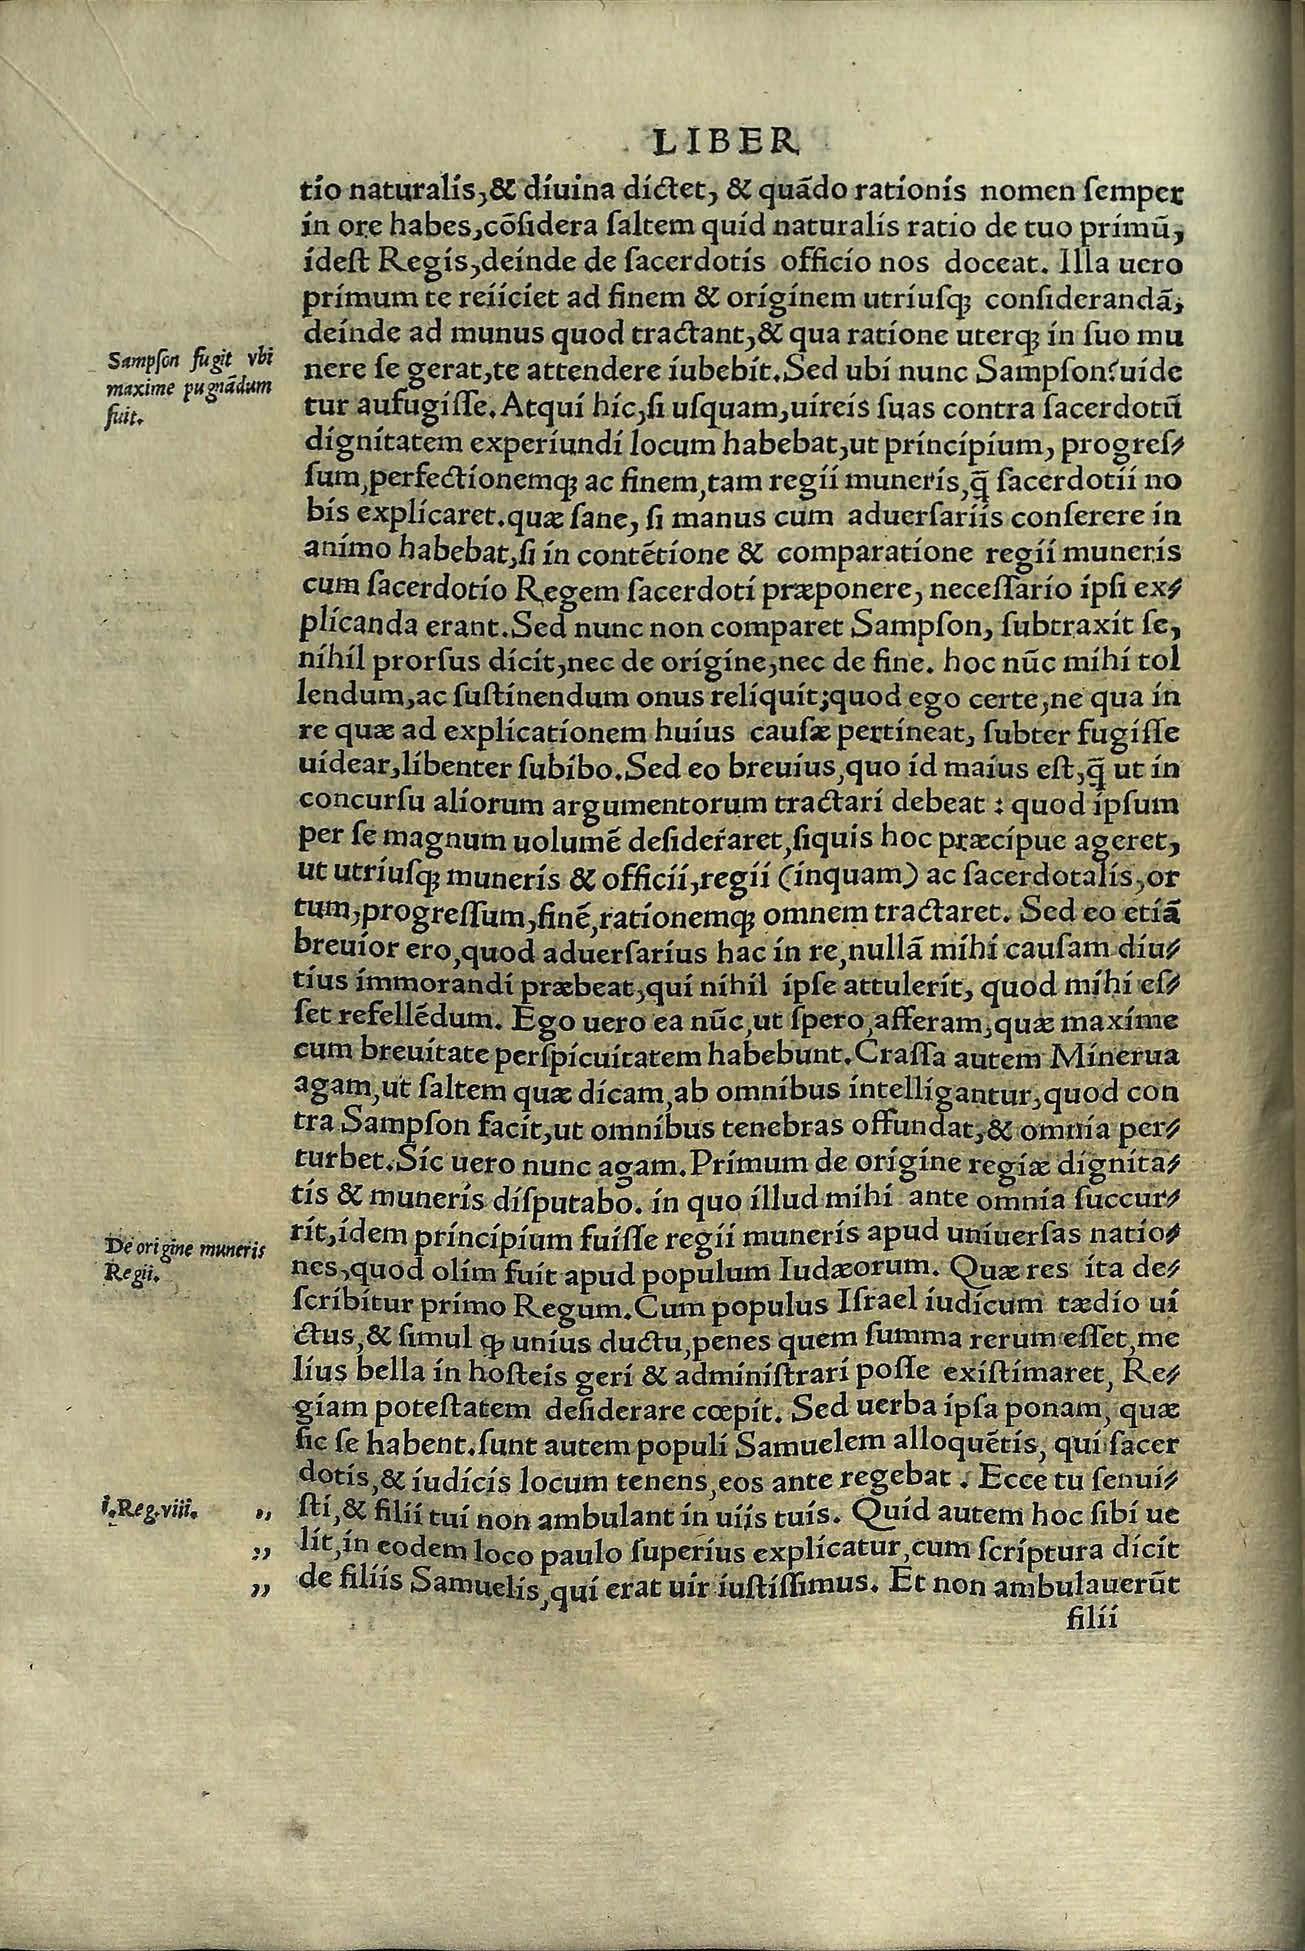 LIBER
tio naturalis, & diuina dictet, & quādo rationis nomen ſemper
in ore habes, cōſidera ſaltem quid naturalis ratio de tuo primū,
ideſt Regis, deinde de ſacerdotis officio nos doceat. Illa uero
primum te reiiciet ad finem & originem utriuſq; conſiderandā,
deinde ad munus quod tractant, & qua ratione uterq; in ſuo mu
Sampſon fugit vbi
maxime pugnādum
fuit.
nere ſe gerat, te attendere iubebit. Sed ubi nunc Sampſon? uide
tur aufugiſſe. Atqui hic, ſi uſquam, uireis ſuas contra ſacerdotū
dignitatem experiundi locum habebat, ut principium, progreſ⸗
ſum, perfectionemq; ac finem, tam regii muneris, q̄ ſacerdotii no
bis explicaret. quæ ſane, ſi manus cum aduerſariis conſerere in
animo habebat, ſi in contētione & comparatione regii muneris
cum ſacerdotio Regem ſacerdoti præponere, neceſſario ipſi ex⸗
plicanda erant. Sed nunc non comparet Sampſon, ſubtraxit ſe,
nihil prorſus dicit, nec de origine, nec de fine. hoc nūc mihi tol
lendum, ac ſuſtinendum onus reliquit; quod ego certe, ne qua in
re quæ ad explicationem huius cauſæ pertineat, ſubter fugiſſe
uidear, libenter ſubibo. Sed eo breuius, quo id maius eſt, q̄ ut in
concurſu aliorum argumentorum tractari debeat : quod ipſum
per ſe magnum uolumē deſideraret, ſiquis hoc præcipue ageret,
ut utriuſq; muneris & officii, regii (inquam) ac ſacerdotalis, or
tum, progreſſum, finē, rationemq; omnem tractaret. Sed eo etiā
breuior ero, quod aduerſarius hac in re, nullā mihi cauſam diu⸗
tius immorandi præbeat, qui nihil ipſe attulerit, quod mihi eſ⸗
ſet refellēdum. Ego uero ea nūc, ut ſpero, afferam, quæ maxime
cum breuitate perſpicuitatem habebunt. Craſſa autem Minerua
agam, ut ſaltem quæ dicam, ab omnibus intelligantur, quod con
tra Sampſon facit, ut omnibus tenebras offundat, & omnia per⸗
turbet. Sic uero nunc agam. Primum de origine regiæ dignita⸗
tis & muneris diſputabo. in quo illud mihi ante omnia ſuccur⸗
De origine muneris
Regii.
rit, idem principium fuiſſe regii muneris apud uniuerſas natio⸗
nes, quod olim fuit apud populum Iudæorum. Quæ res ita de⸗
ſcribitur primo Regum. Cum populus Iſrael iudicum tædio ui
ctus, & ſimul ꝙ unius ductu, penes quem ſumma rerum eſſet, me
lius bella in hoſteis geri & adminiſtrari poſſe exiſtimaret, Re⸗
giam poteſtatem deſiderare cœpit. Sed uerba ipſa ponam, quæ
ſic ſe habent. ſunt autem populi Samuelem alloquētis, qui ſacer
dotis, & iudicis locum tenens, eos ante regebat. Ecce tu ſenui⸗
I. Reg. viii.
,, ſti, & filii tui non ambulant in uiis tuis. Quid autem hoc ſibi ue
,, lit, in eodem loco paulo ſuperius explicatur, cum ſcriptura dicit
,, de filiis Samuelis, qui erat uir iuſtiſſimus. Et non ambulauerūt
filii